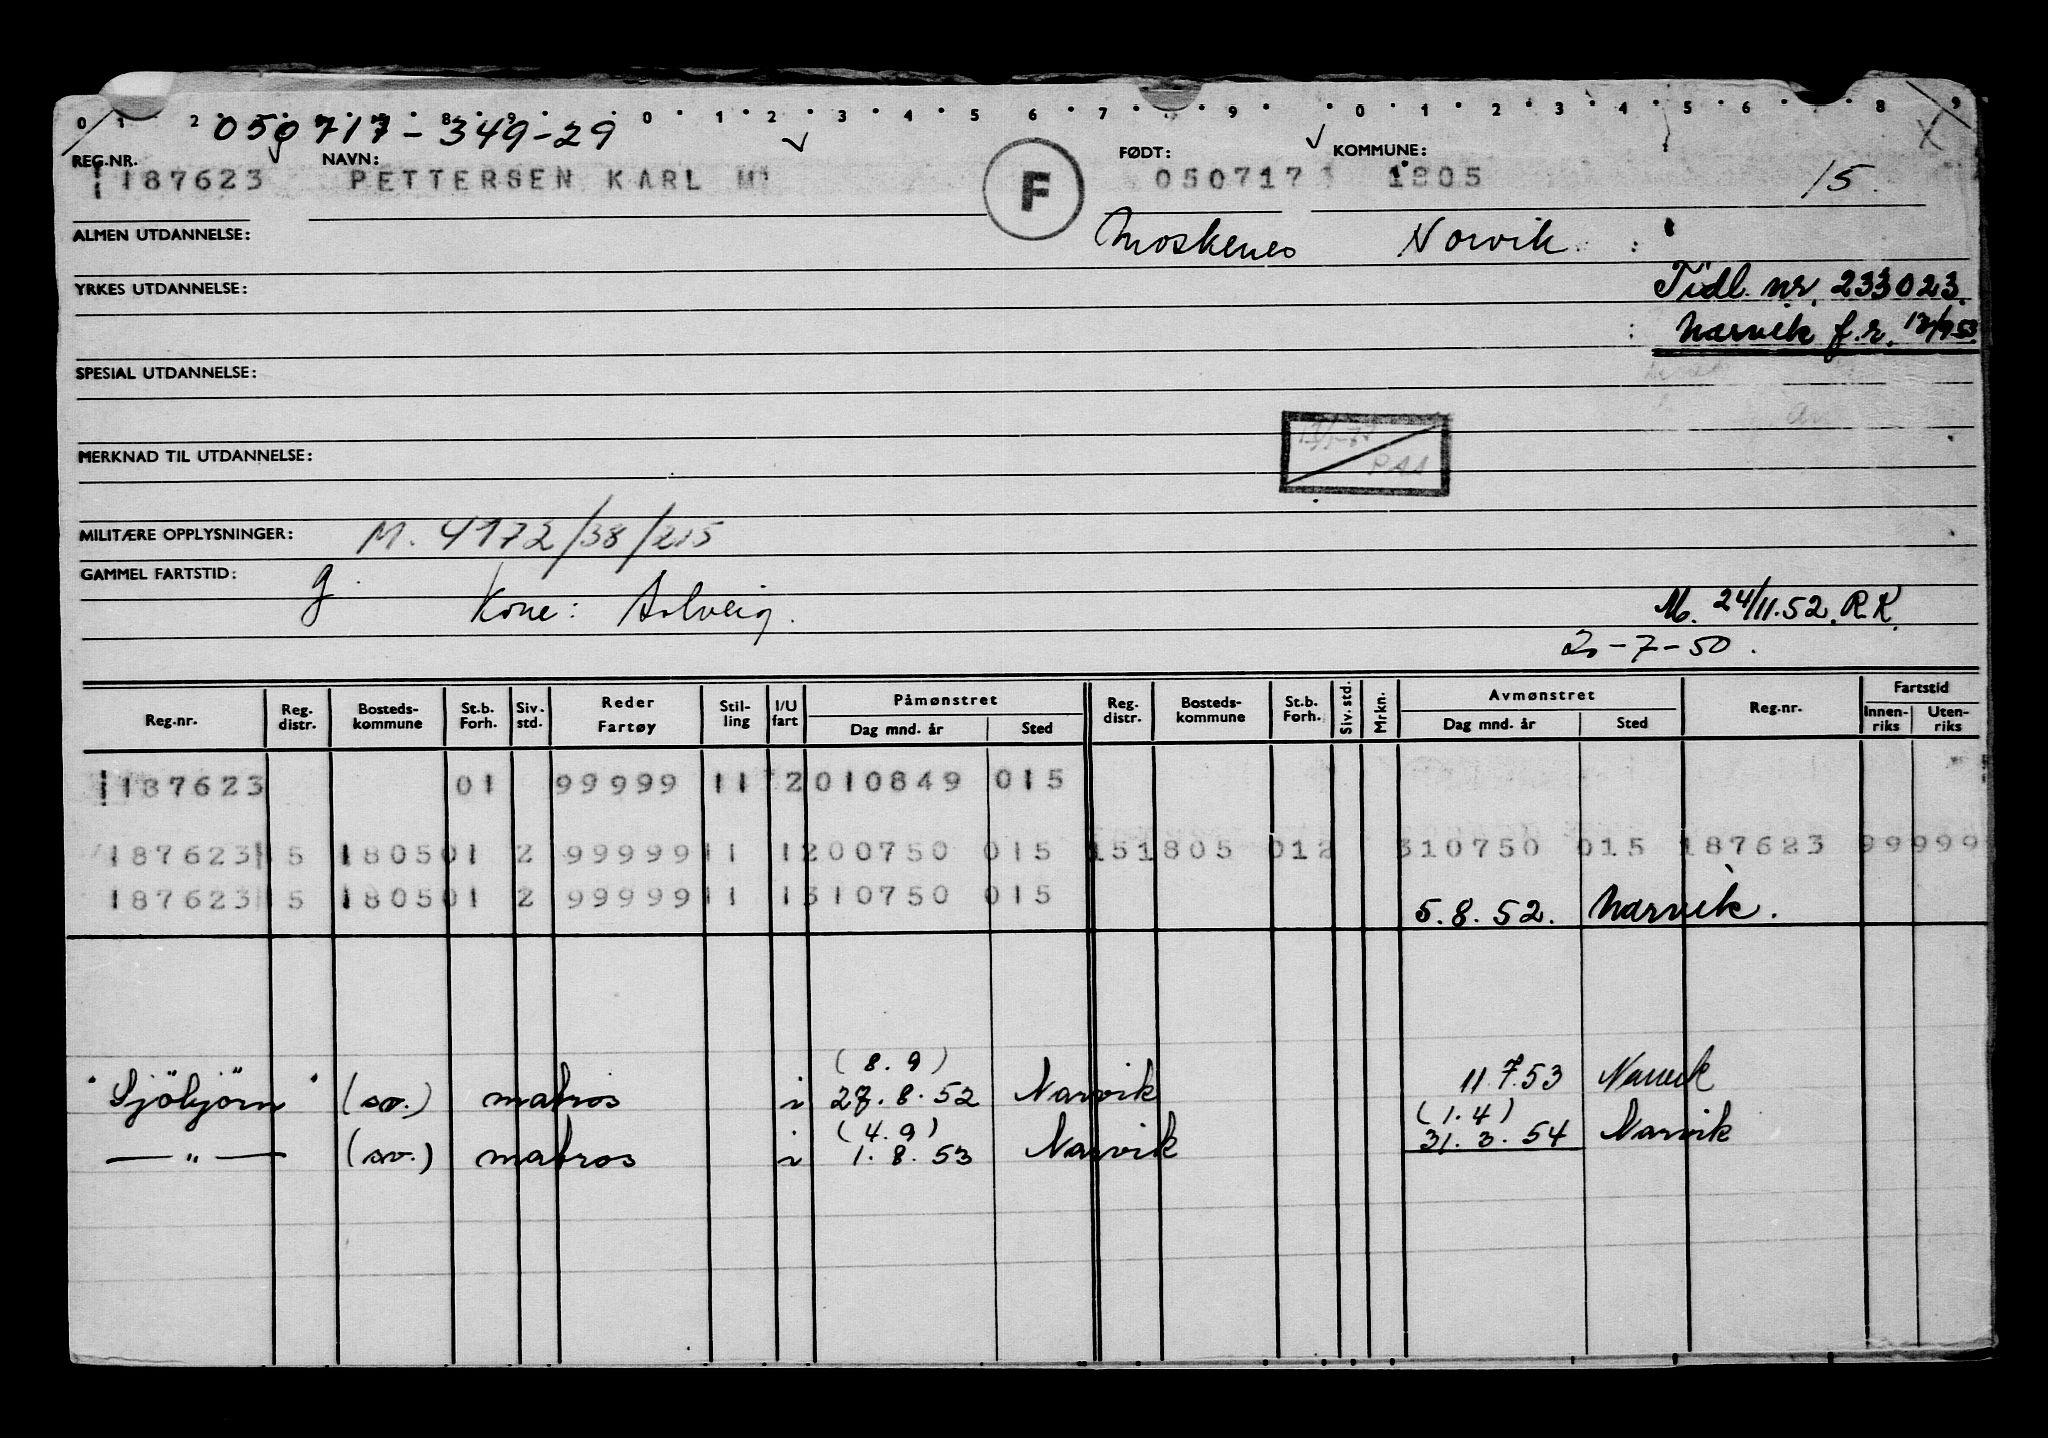 050717-349-29
REG.NR. NAVN: FØDT: KOMMUNE:
187623 PETTERSEN KARL M F 050717 1805 15
ALMEN UTDANNELSE: Moskenes Narvik
YRKES UTDANNELSE: Tidl. nr. 233023.
Narvik f.r. 12/9 53
SPESIAL UTDANNELSE:
MERKNAD TIL UTDANNELSE:
MILITÆRE OPPLYSNINGER: M. 4172/38/215
GAMMEL FARTSTID: g
Kone: Solveig. M. 24/11.52. R.K.
2-7-50.
Reg.nr. Reg. distr. Bosteds-kommune St.b. Forh. Siv. std. Reder Fartøy Stil-ling I/U fart Påmønstret Dag mnd. år Sted Reg. distr. Bosteds-kommune St.b. Forh. Siv. std. Mrkn. Avmønstret Dag mnd. år Sted Reg.nr. Fartstid Innen-riks Uten-riks
187623 01 99999 11 2 010849 015
187623 15 1805 01 2 99999 11 1 200750 015 15 1805 01 2 310750 015 187623 99999
187623 15 1805 01 2 99999 11 1 310750 015 5.8.52. Narvik.
(8.9)
"Sjöbjörn" (sv.) matros i 28.8.52 Narvik 11.7.53 Narvik
(4.9) (1.4)
— " — (sv.) matros i 1.8.53 Narvik 31.3.54 Narvik